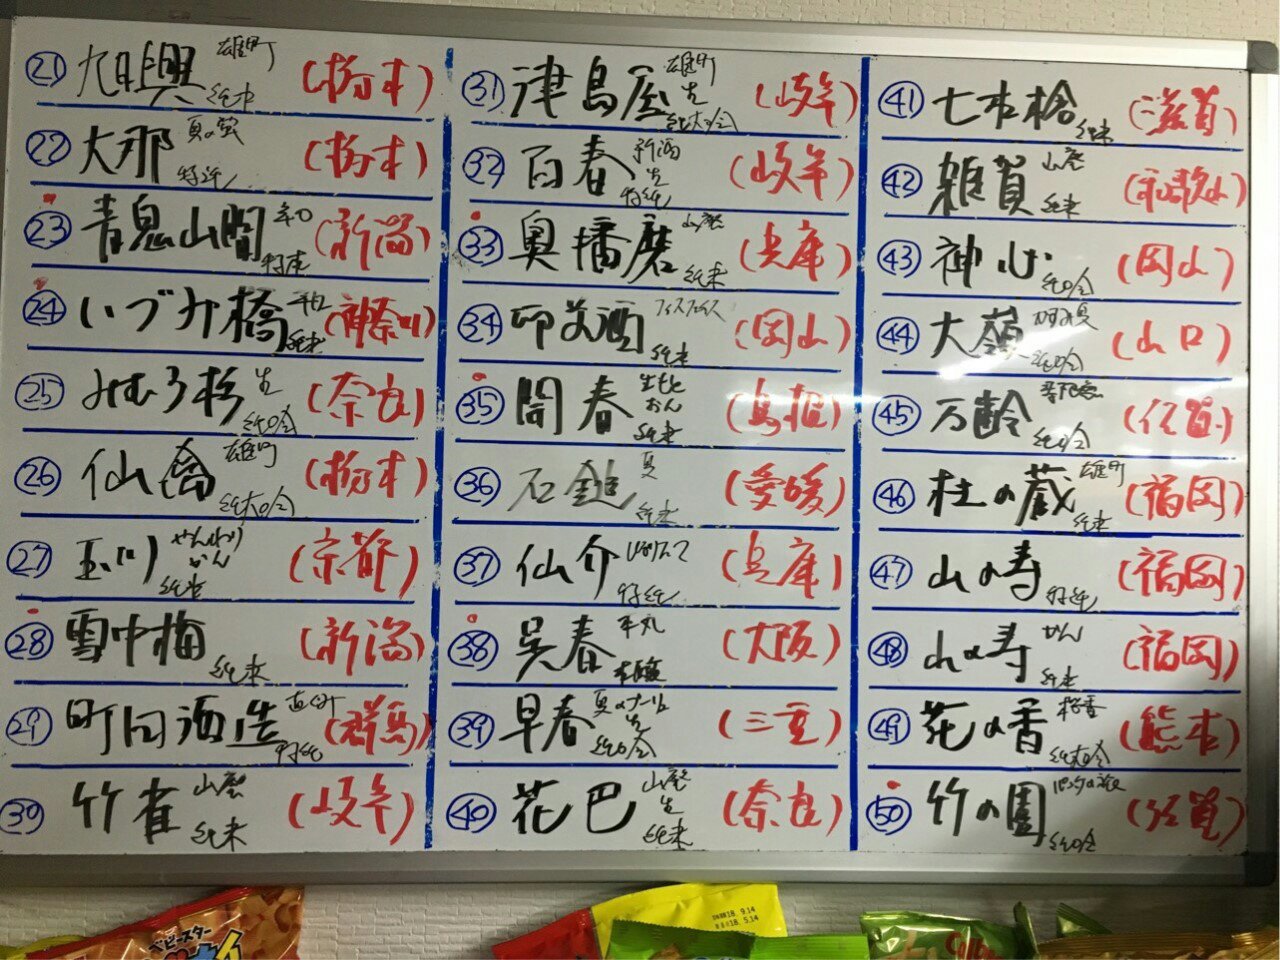 21 旭興 雄町 純米 (栃木)
22 大那 夏の蛍 特純 (栃木)
23 青鬼山間 (新潟)
24 いづみ橋 純米 (神奈川)
25 みむろ杉 生 純吟 (奈良)
26 仙禽 雄町 純大吟 (栃木)
27 玉川 やんわり かん 純米 (京都)
28 雪中梅 純米 (新潟)
29 町田酒造 特純 (群馬)
30 竹雀 山廃 純米 (岐阜)
31 津島屋 雄町 生 純大吟 (岐阜)
32 百春 新酒 生 特純 (岐阜)
33 奥播磨 山廃 純米 (兵庫)
34 酒 純米 (岡山)
35 開春 生もと おん 純米 (島根)
36 石鎚 夏 純米 (愛媛)
37 仙介 特純 (兵庫)
38 呉春 本丸 本醸 (大阪)
39 早春 夏の 生 純吟 (三重)
40 花巴 山廃 生 純米 (奈良)
41 七本槍 純米 (滋賀)
42 雑賀 山廃 純米 (和歌山)
43 神心 純吟 (岡山)
44 大嶺 純吟 (山口)
45 万齢 純吟 (佐賀)
46 杜の蔵 雄町 純米 (福岡)
47 山の寿 特純 (福岡)
48 山の寿 かん 純米 (福岡)
49 花の香 桜香 純大吟 (熊本)
50 竹の園 純吟 (佐賀)
ベビースター
18.9.14
18.5.14